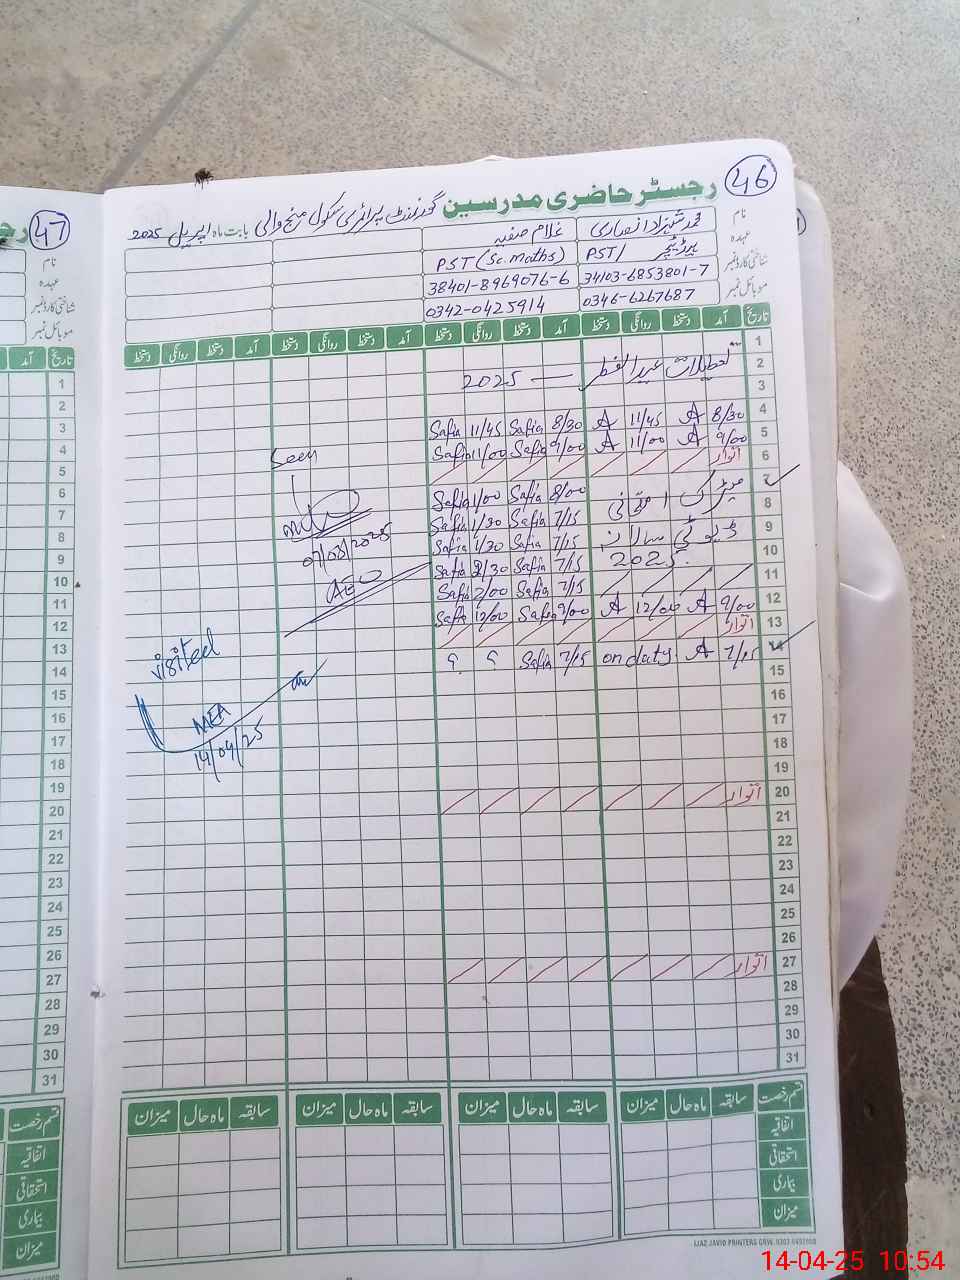 46
رجسٹر حاضری مدرسین گورنمنٹ پرائمری سکول منج والی بابت ماہ اپریل 2025
47
نام محمد شہزاد انصاری غلام صفیہ
عہدہ PST/ PST (Sc. maths)
شناختی کارڈ نمبر 34103-6853801-7 38401-8969076-6
موبائل نمبر 0346-6267687 0342-0425914
تاریخ آمد دستخط روانگی دستخط آمد دستخط روانگی دستخط آمد دستخط روانگی دستخط آمد دستخط روانگی دستخط
1
2 تعطیلات عید الفطر — 2025
3
4 8/30 A 11/45 A 8/30 Safia 11/45 Safia
5 9/00 A 11/00 A 9/00 Safia 11/00 Safia
6 اتوار
7 میٹرک 8/00 Safia 1/00 Safia
8 7/15 Safia 1/30 Safia
9 ڈیوٹی سالانہ 7/15 Safia 1/30 Safia
10 2025. 7/15 Safia 2/30 Safia
11 7/15 Safia 2/00 Safia
12 9/00 A 12/00 A 9/00 Safia 12/00 Safia
13 اتوار
14 7/15 A on duty 7/15 Safia ؟ ؟
15
16
17
18
19
20 اتوار
21
22
23
24
25
26
27 اتوار
28
29
30
31
Seen
AEO
visited
MEA
14/04/25
قسم رخصت سابقہ ماہ حال میزان سابقہ ماہ حال میزان سابقہ ماہ حال میزان سابقہ ماہ حال میزان
اتفاقیہ
استحقاقی
بیماری
میزان
نام
عہدہ
شناختی کارڈ نمبر
موبائل نمبر
تاریخ آمد
1
2
3
4
5
6
7
8
9
10
11
12
13
15
16
17
18
19
20
21
22
23
24
25
26
27
28
29
30
31
قسم رخصت
اتفاقیہ
استحقاقی
بیماری
میزان
IJAZ JAVID PRINTERS GRW.
14-04-25 10:54